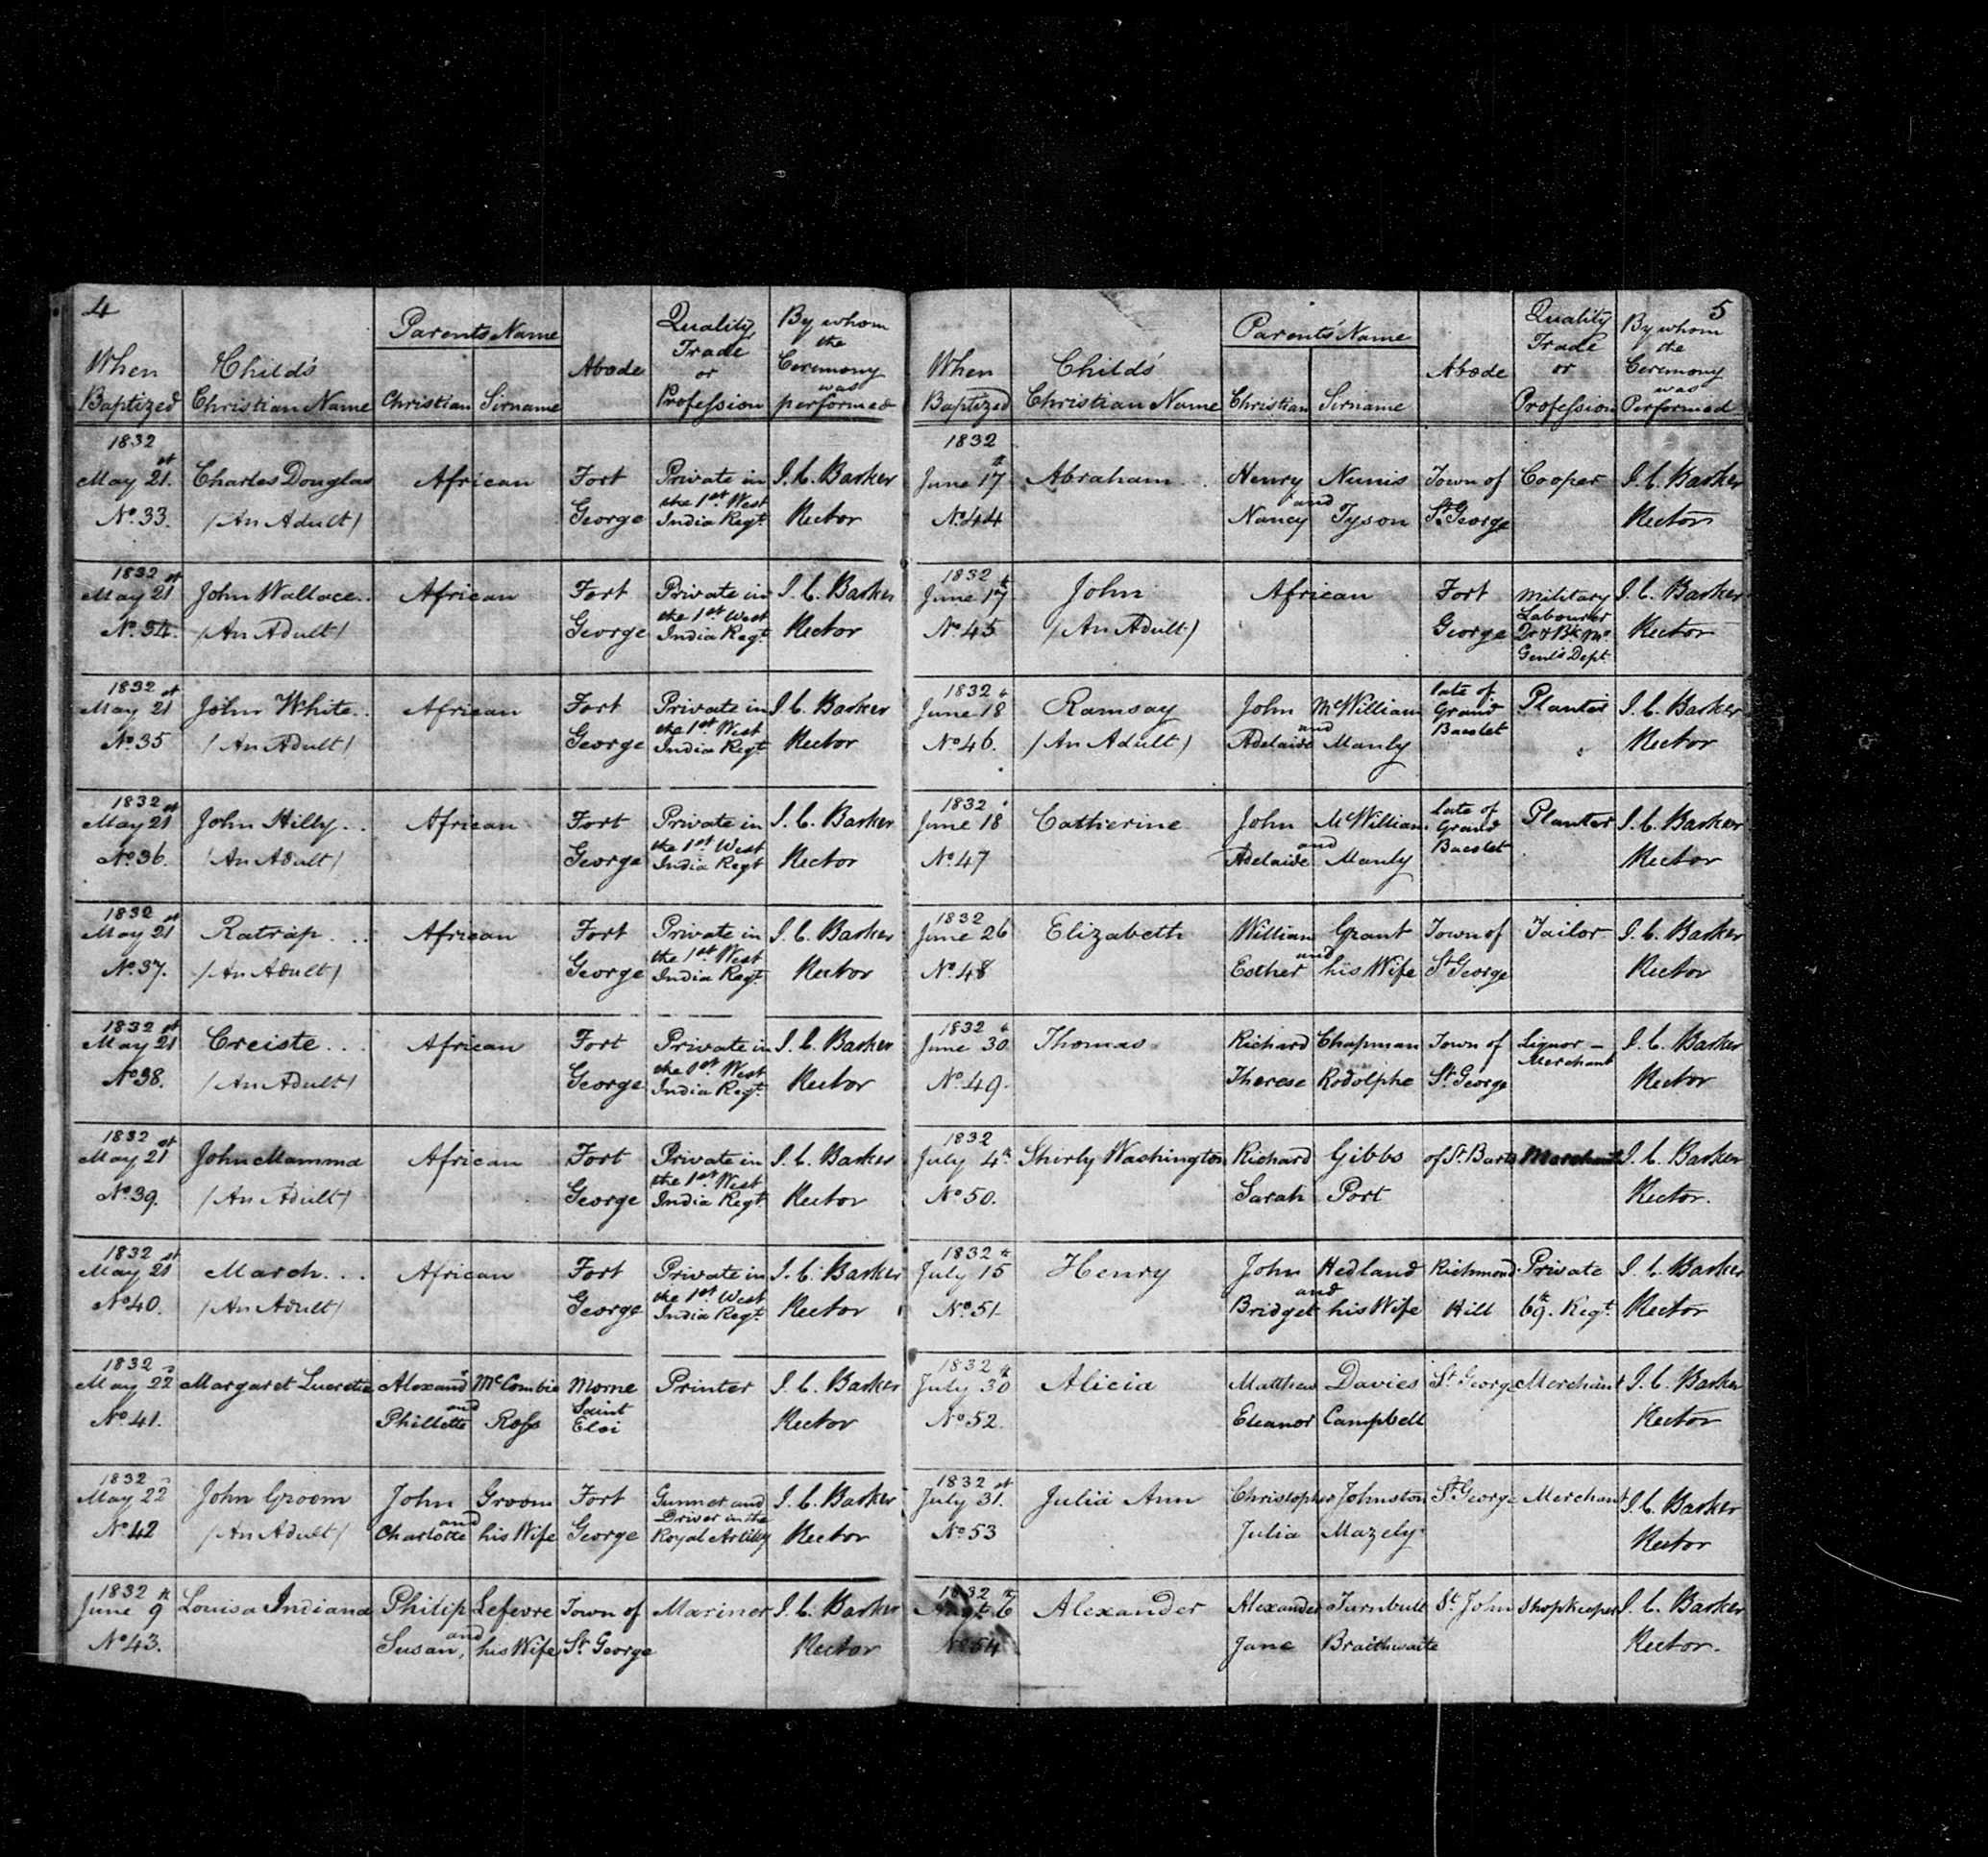 4
When Baptized Child's Christian Name Parents Name Christian Sirname Abode Quality Trade or Profession By whom the Ceremony was performed
1832
May 21st Charles Douglas African Fort Private in the 1st West I. C. Barker
No. 33. (An Adult) George India Regt. Rector
1832
May 21st John Wallace.. African Fort Private in the 1st West I. C. Barker
No. 34. (An Adult) George India Regt. Rector
1832
May 21st John White.. African Fort Private in the 1st West I. C. Barker
No. 35 (An Adult) George India Regt. Rector
1832
May 21st John Hilly.. African Fort Private in the 1st West I. C. Barker
No. 36. (An Adult) George India Regt Rector
1832
May 21st Ratrap... African Fort Private in the 1st West I. C. Barker
No. 37. (An Adult) George India Regt. Rector
1832
May 21st Creiste... African Fort Private in the 1st West I. C. Barker
No. 38. (An Adult) George India Regt. Rector
1832
May 21st John Mamma African Fort Private in the 1st West I. C. Barker
No. 39. (An Adult) George India Regt. Rector
1832
May 21st March... African Fort Private in the 1st West I. C. Barker
No. 40. (An Adult) George India Regt. Rector
1832
May 22 Margaret Lucretia Alexand. McCombie Morne Printer I. C. Barker
No. 41. and Phillette Ross Saint Eloi Rector
1832
May 22 John Groom John Groom Fort Gunner and Driver in the I. C. Barker
No. 42 (An Adult) and Charlotte his Wife George Royal Artilly Rector
1832
June 9th Louisa Indiana Philip Lefevre Town of Mariner I. C. Barker
No. 43. and Susan, his Wife St. George Rector
5
When Baptized Child's Christian Name Parents' Name Christian Sirname Abode Quality Trade or Profession By whom the Ceremony was Performed
1832
June 17th Abraham.. Henry Nunis Town of Cooper I. C. Barker
No. 44 and Nancy Tyson St. George Rector
1832
June 17th John African Fort Military Labourer I. C. Barker
No. 45 (An Adult) George Qr & Bk Mr Genl's Dept. Rector
1832
June 18th Ramsay John McWilliam late of Grand Planter I. C. Barker
No. 46. (An Adult) and Adelaide Manly Bacolet Rector
1832
June 18 Catherine John McWilliam late of Grand Planter I. C. Barker
No. 47 and Adelaide Manly Bacolet Rector
1832
June 26 Elizabeth William Grant Town of Tailor I. C. Barker
No. 48 and Esther his Wife St. George Rector
1832
June 30th Thomas. Richard Chapman Town of Liquor - Merchant I. C. Barker
No. 49. Therese Rodolphe St. George Rector
1832
July 4th Shirly Washington Richard Gibbs of St. Barts Merchant I. C. Barker
No. 50. Sarah Port Rector.
1832
July 15th Henry John Hedland Richmond Private I. C. Barker
No. 51. and Bridget his Wife Hill 69th. Regt. Rector
1832
July 30th Alicia Matthew Davies St. George Merchant I. C. Barker
No. 52. Eleanor Campbell Rector
1832
July 31st. Julia Ann Christopher Johnston St. George Merchant I. C. Barker
No. 53 Julia Mazely. Rector
1832
6th Alexander Alexander Turnbull St. John Shopkeeper I. C. Barker
No. 54 Jane Braithwaite Rector.